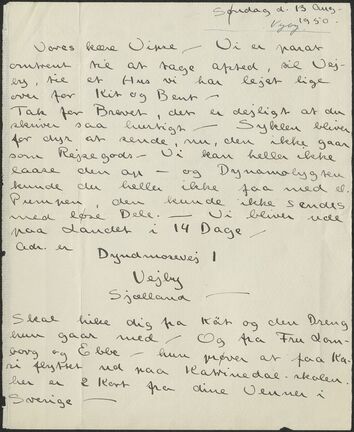 Søndag d. 13 Aug.
1950.
Vores kære Vime — Vi er parat
omtrent til at tage afsted, til Vej-
by, til et Hus vi har lejet lige
over for Kit og Bent —
Tak for Brevet, det er dejligt at du
skriver saa hurtigt — Syklen bliver
for dyr at sende, nu, den ikke gaar
som Rejsegods — Vi kan heller ikke
laase den op — og Dynamolygten
kunde du heller ikke faa med d.
Pumpen, den kunde ikke sendes
med løse Dele. — Vi bliver ude
paa Landet i 14 Dage —
Adr. er Dyndmosevej 1
Vejby
Sjælland —
Skal hilse dig fra Kät og den Dreng
hun gaar med — Og fra Fru Lom-
borg og Ebbe — hun prøver at faa Ka-
ri flyttet ud paa Katrinedal-skolen.
her er 2 Kort fra dine Venner i
Sverige —